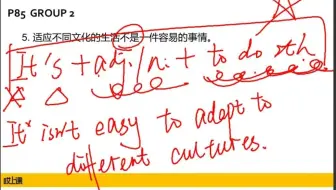 P85 GROUP 2
5. 适应不同文化的生活不是一件容易的事情。
It's + adj. / n. + to do sth
It isn't easy to adapt to
different cultures.